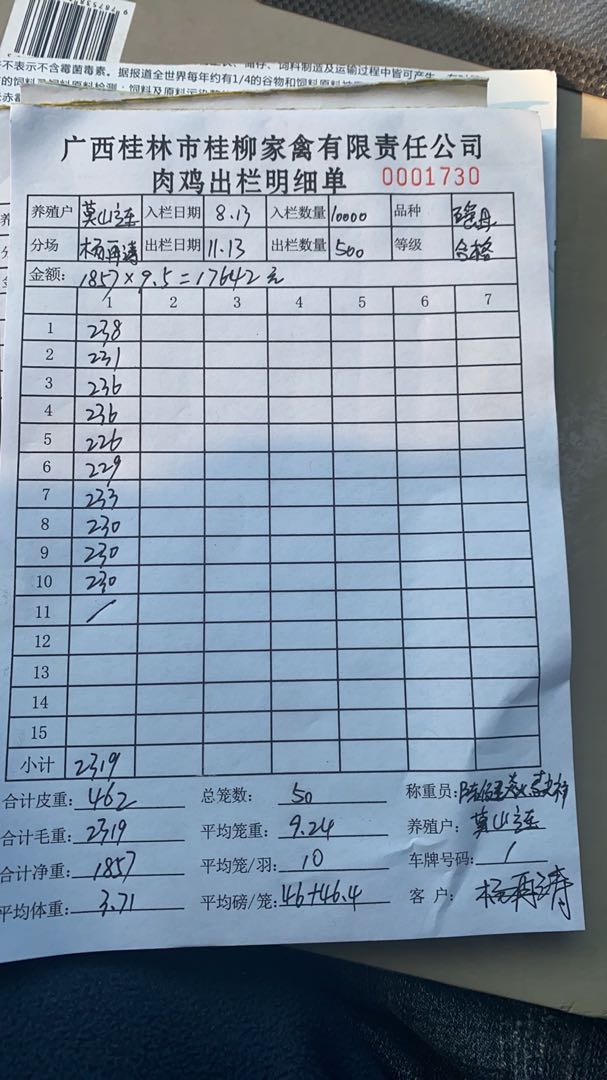 不表示不含霉菌毒素。据报道全世界每年约有1/4的谷物和饲料原料
广西桂林市桂柳家禽有限责任公司
肉鸡出栏明细单 0001730
养殖户 入栏日期 8.13 入栏数量 10000 品种
分场 杨再涛 出栏日期 11.13 出栏数量 500 等级 合格
金额: 1857×9.5=17642元
1 2 3 4 5 6 7
1 238
2 231
3 236
4 236
5 226
6 229
7 233
8 230
9 230
10 230
11 /
12
13
14
15
小计 2319
合计皮重: 462 总笼数: 50 称重员:
合计毛重: 2319 平均笼重: 9.24 养殖户:
合计净重: 1857 平均笼/羽: 10 车牌号码: 1
平均体重: 3.71 平均磅/笼: 46+46.4 客 户: 杨再涛